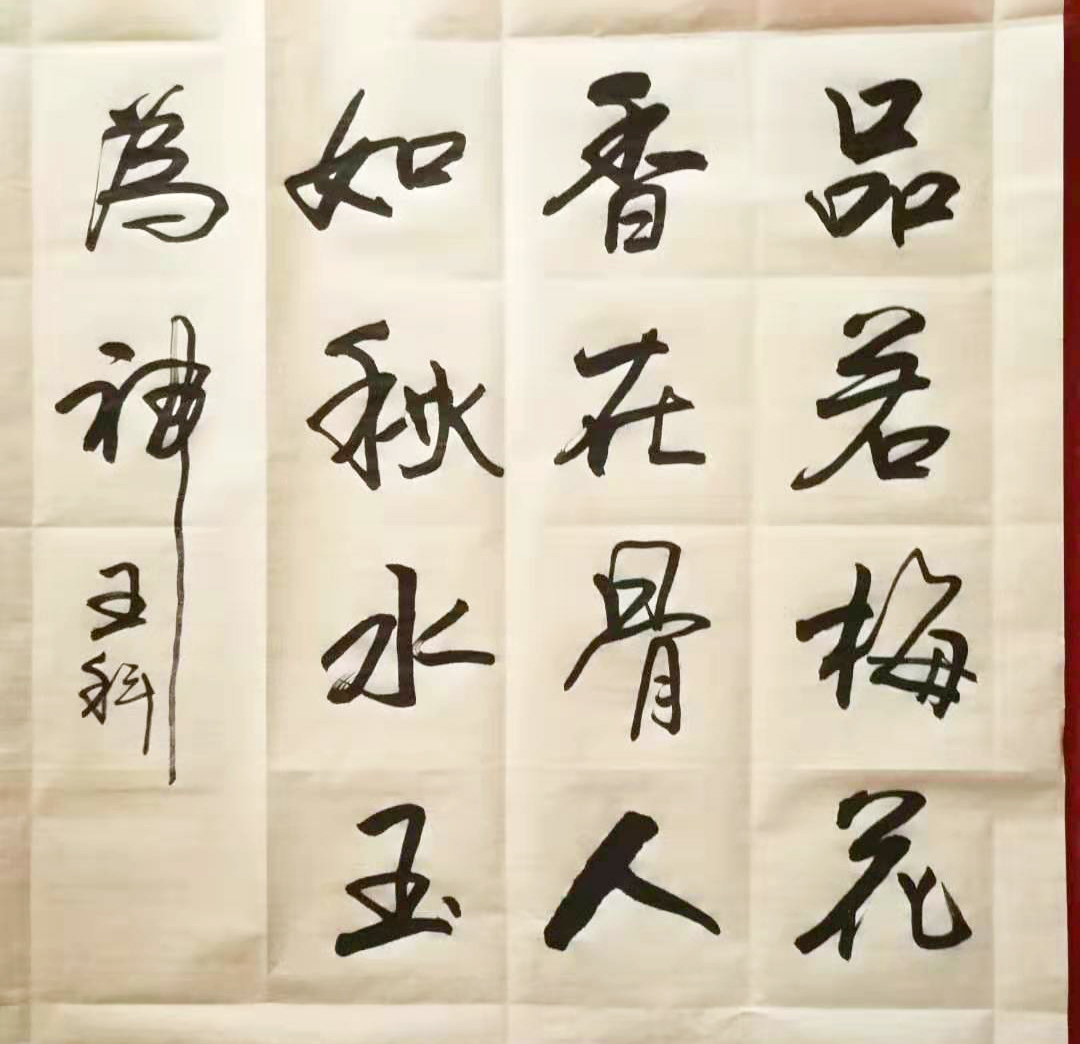 品若梅花
香在骨人
如秋水玉
為神
王科